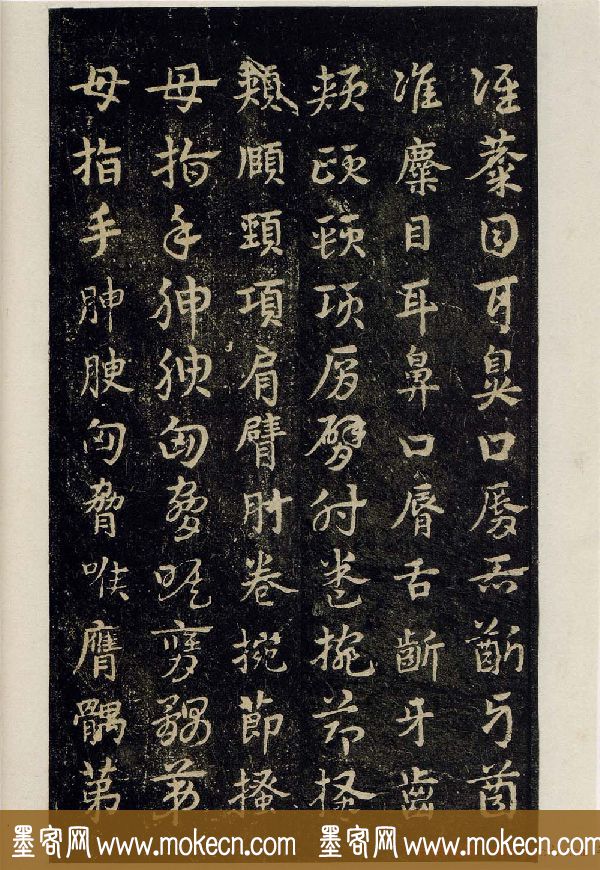 准麋目耳鼻口脣舌齗牙齒
准麋目耳鼻口脣舌齗牙齒
頰頤頸項肩臂肘卷捥節搔
頰頤頸項肩臂肘卷捥節搔
母指手胂腴匈脅喉膺髃苐
母指手胂腴匈脅喉膺髃苐
墨客网 www.mokecn.com 墨客网 www.mokecn.com